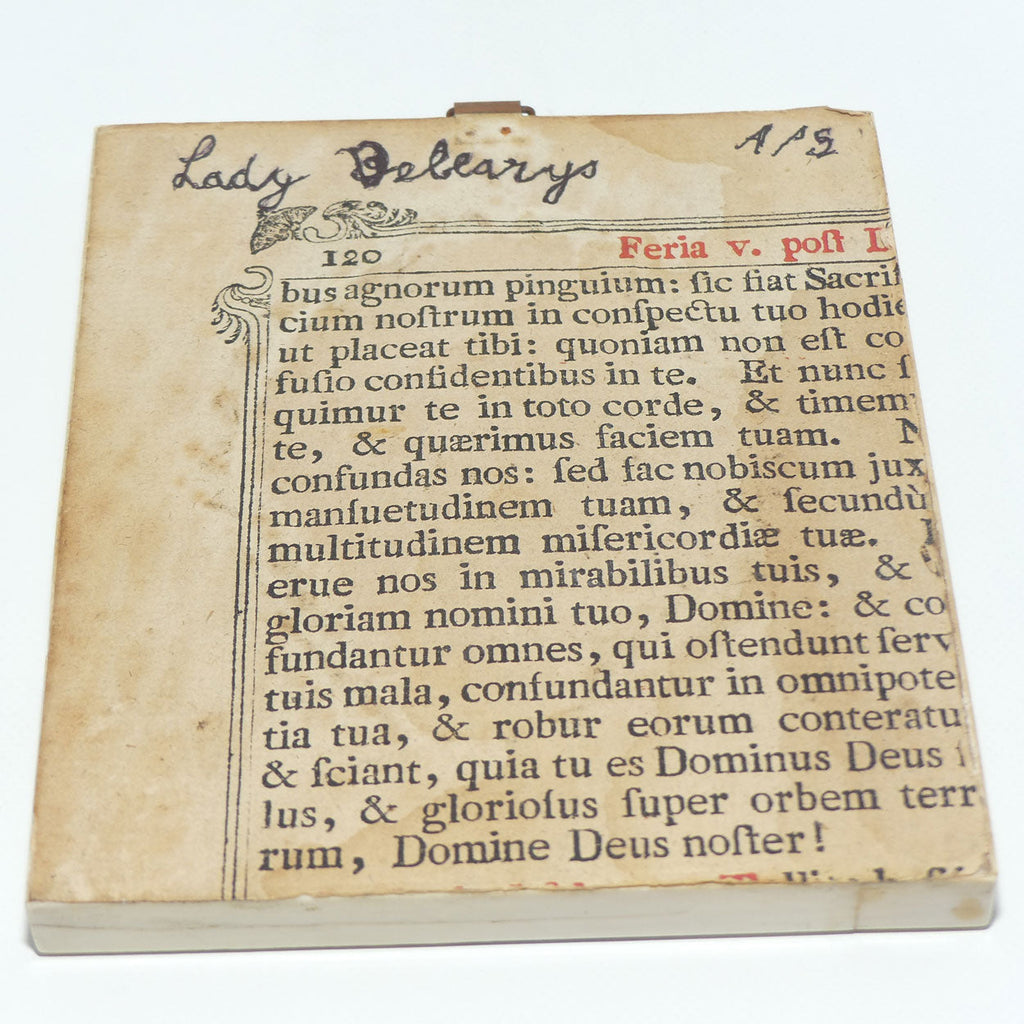 Lady Debearys APS
120 Feria v. poſt L
bus agnorum pinguium: ſic fiat Sacrif
cium noſtrum in conſpectu tuo hodie
ut placeat tibi: quoniam non eſt co
fuſio confidentibus in te. Et nunc ſ
quimur te in toto corde, & timem
te, & quærimus faciem tuam. N
confundas nos: ſed fac nobiscum jux
manſuetudinem tuam, & ſecundù
multitudinem miſericordiæ tuæ.
erue nos in mirabilibus tuis, &
gloriam nomini tuo, Domine: & co
fundantur omnes, qui oſtendunt ſerv
tuis mala, confundantur in omnipote
tia tua, & robur eorum conteratu
& ſciant, quia tu es Dominus Deus ſ
lus, & glorioſus ſuper orbem terr
rum, Domine Deus noſter!